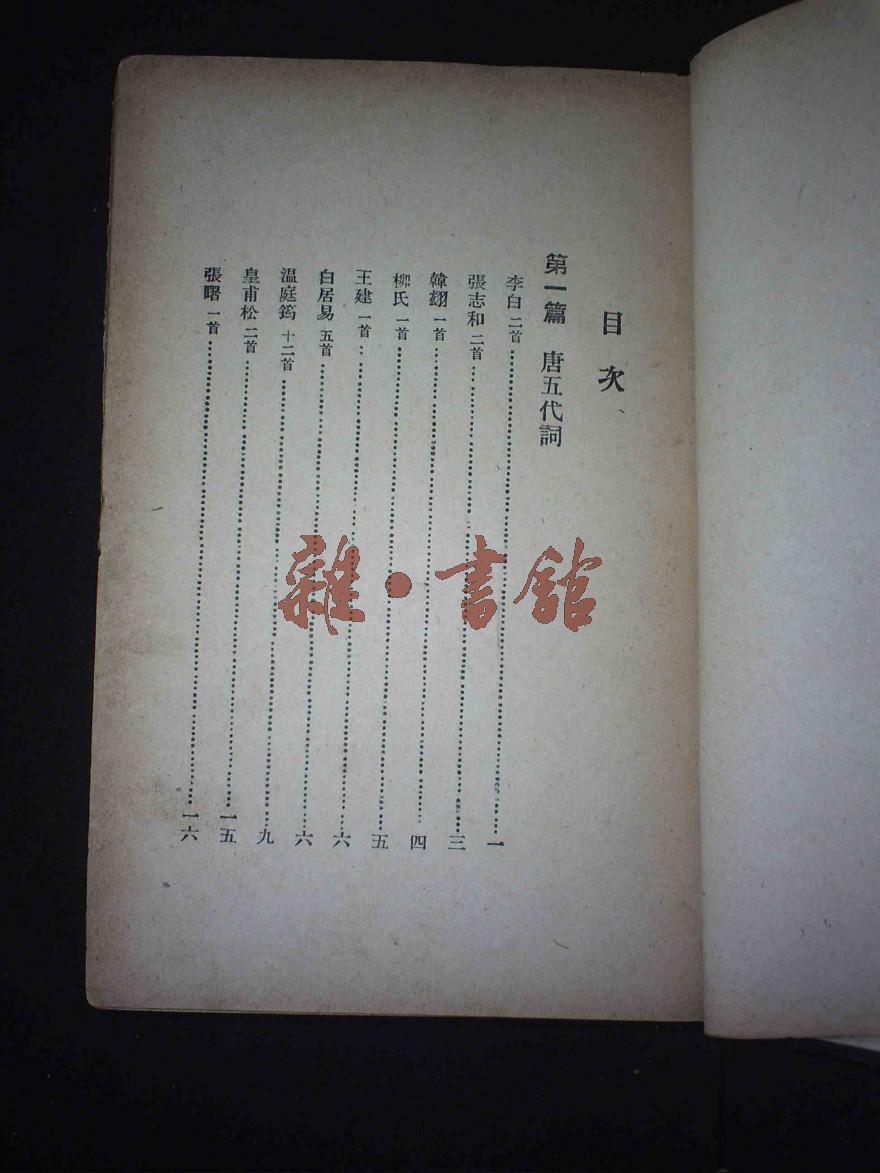 目次
第一篇 唐五代詞
李白 二首……一
張志和 二首……三
韓翃 一首……四
柳氏 一首……五
王建 一首……六
白居易 五首……六
溫庭筠 十二首……九
皇甫松 二首……一五
張曙 一首……一六
雜·書舘